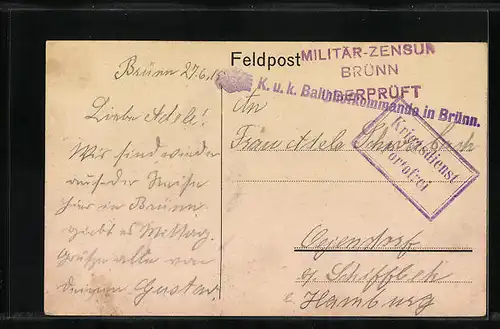 Feldpost
MILITÄR-ZENSUR
BRÜNN
ÜBERPRÜFT
K. u. k. Bahnhofkommando in Brünn.
Kriegsdienst
Portofrei
Brünn 27.6.
Liebe Adele!
Wir sind wieder
auf der Reise
hier in Brünn
giebt es Mittag.
Grüße alle von
deinem Gustav
An
Frau Adele
Ojendorf
b/ Schiffbek
b. Hamburg